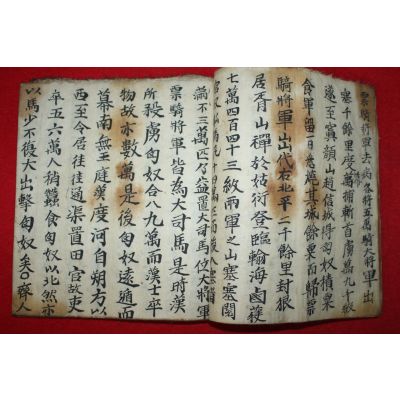 票騎將軍去病各將五萬騎大將軍出
塞千餘里度萬捕斬首虜萬九千級
遂至寘顔山趙信城得匈奴積粟
食軍留一日悉燒其城餘粟而歸票
騎將軍出代右北平二千餘里封狼
居胥山禪於姑衍登臨翰海鹵獲
七萬四百四十三級兩軍之出塞塞閱
官及私馬凡十四萬
滿不三萬匹乃益置大司馬位大將軍
票騎將軍皆為大司馬是時漢
所殺虜匈奴合八九萬而漢士卒
物故亦數萬是後匈奴遠遁而
幕南無王庭漢度河自朔方以
西至令居徃徃通渠置田官故吏
卒五六萬人稍蠶食匈奴以北然亦
以馬少不復大出擊匈奴矣○齊人